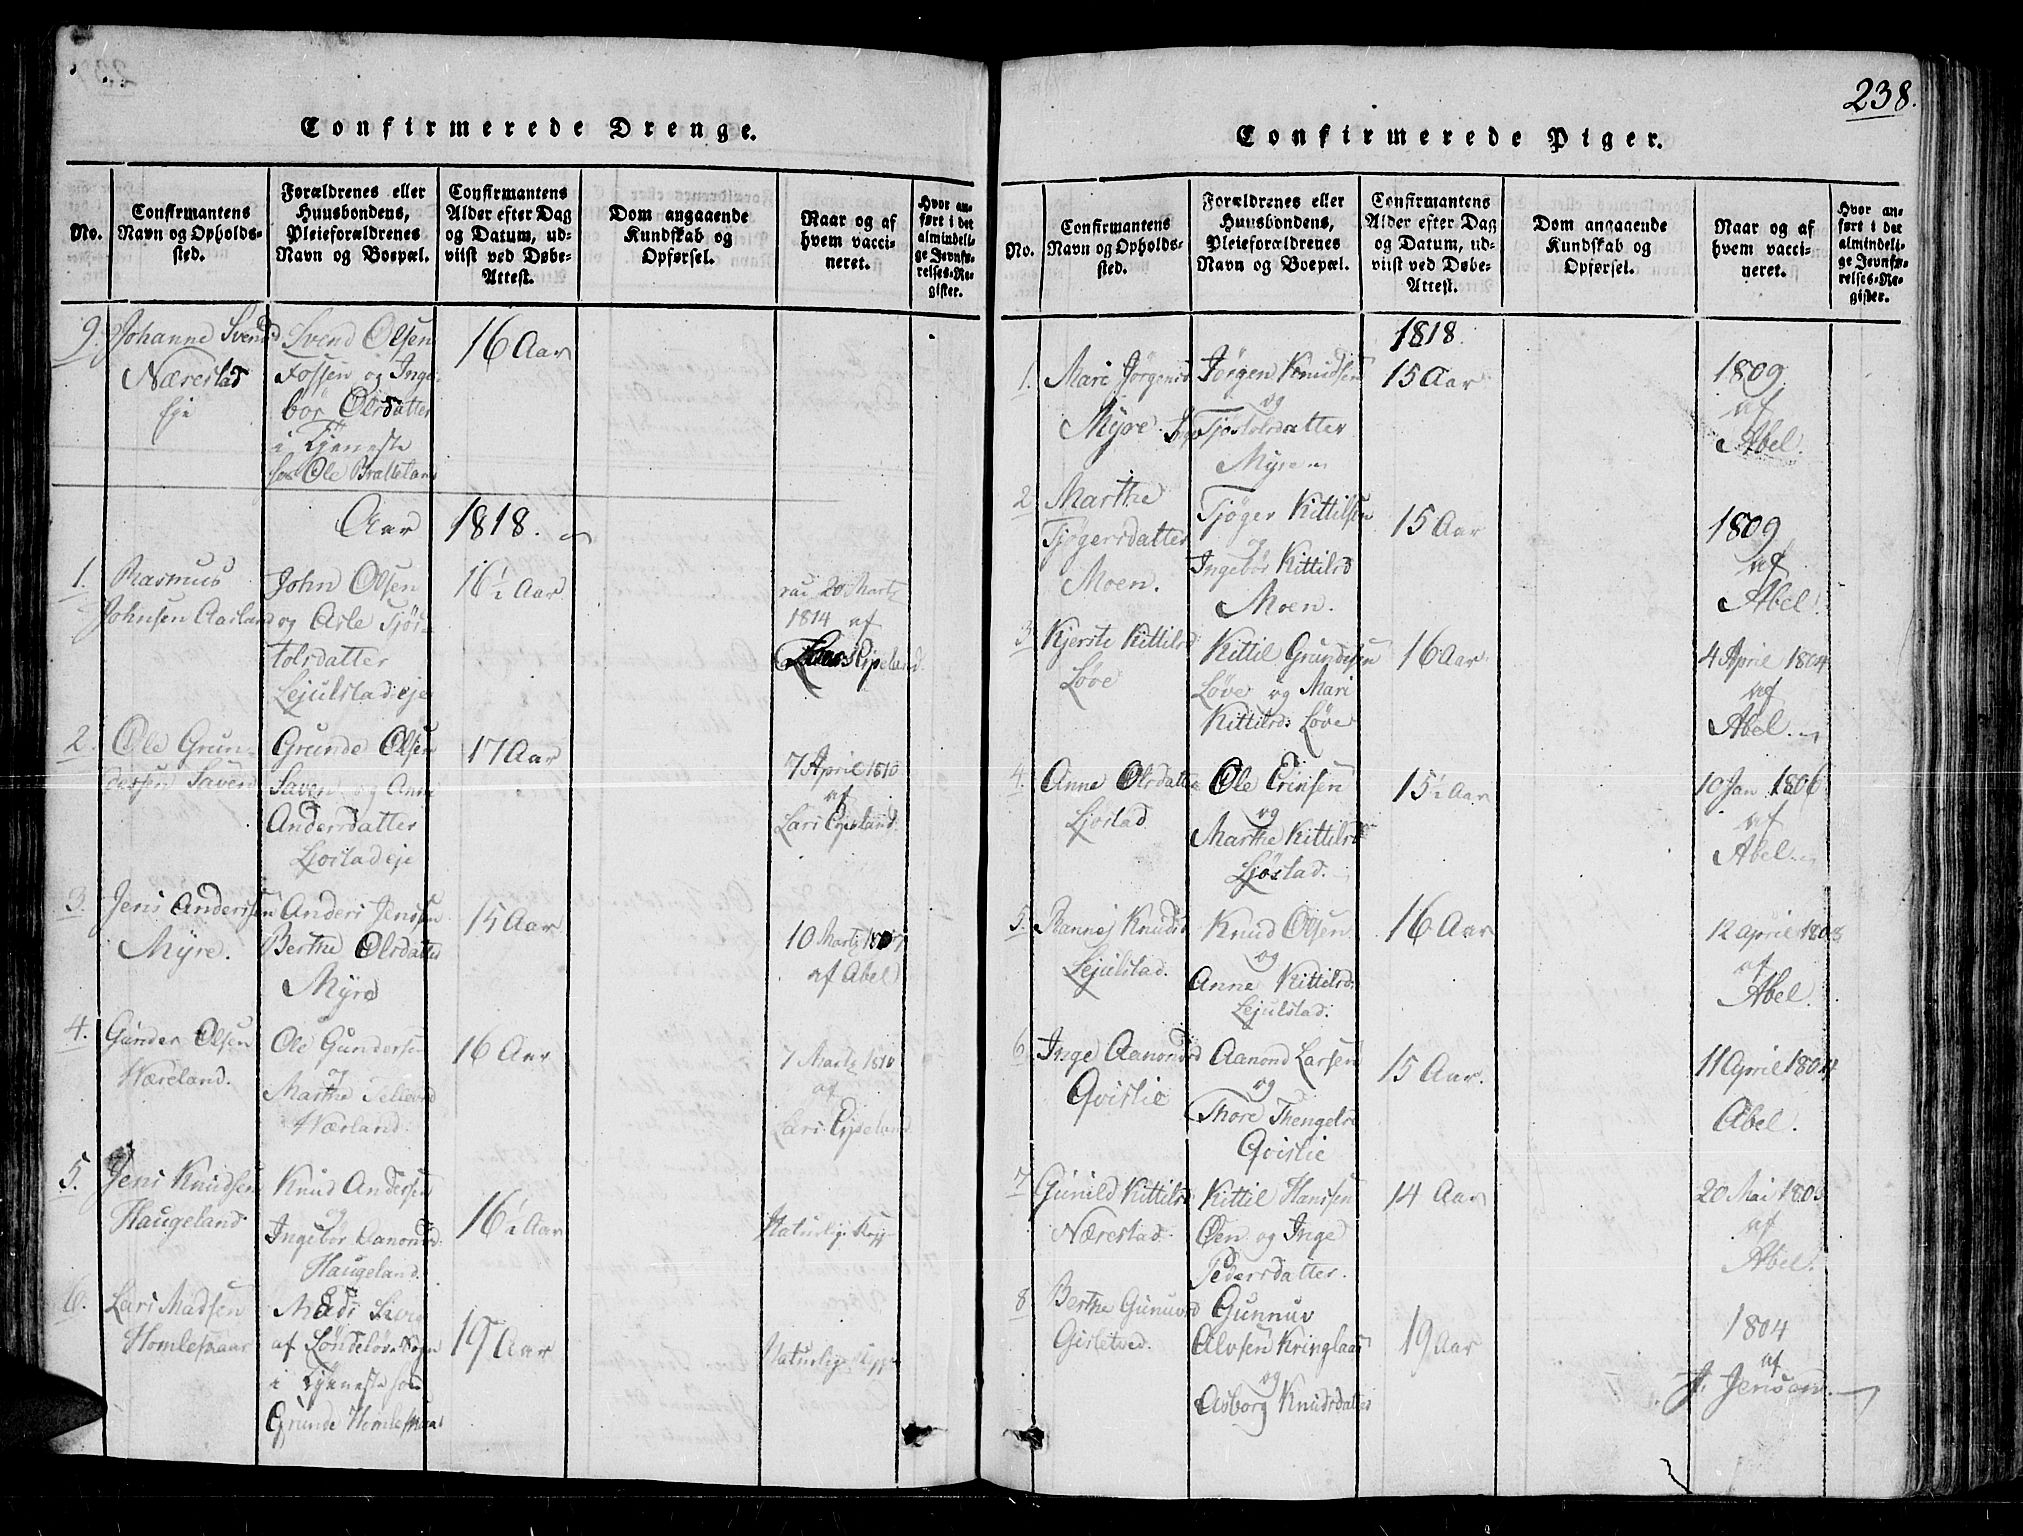 Confirmerede Drenge.
No.
Confirmantens
Navn og Opholds-
sted.
Forældrenes eller
Huusbondens,
Pleieforældrenes
Navn og Boepæl.
Confirmantens
Alder efter Dag
og Datum, ud-
viist ved Døbe-
Attest.
Dom angaaende
Kundskab og
Opførsel.
Naar og af
hvem vacci-
neret.
Hvor an-
ført i det
almindeli-
ge Jevnfø-
relses-Re-
gister.
9. Johanne Svensd
Nærestad
Eje
Svend Olsen
Fossen og Inge-
bor Olsdatter
i Tjeneste
hos Ole Bratteland
16 Aar
Aar 1818.
1. Rasmus
Johnsen Aasland
John Olsen
og Asle Tjøs-
tolsdatter
Lejulstad eje
16½ Aar
20 Marts
1814 af
Lars Espeland
2. Ole Grun-
dessen Saven
Grunde Olsen
Saven og Anne
Andersdatter
Ljostad eje
17 Aar
7 April 1810
af
Lars Espeland
3. Jens Anderssen
Myre.
Anders Jenssen
Berthe Olsdatter
Myre
15 Aar
10 Marts
af Abel
4. Gunder Olsen
Næreland.
Ole Gundersen
Marthe Tellevsd
Nærland.
16 Aar
7 Marts 1810
af
Lars Espeland
5. Jens Knudsen
Haugeland
Knud Andersen
Ingebor Aanonsd.
Haugeland.
16½ Aar
Naturlig Kopp
6. Lars Madsen
Homlesmaar
Mads
af Søndeløv Sogn
i Tjeneste hos
Grunde Homlesmaar
19 Aar
Naturlig Kopp
238.
Confirmerede Piger.
No.
Confirmantens
Navn og Opholds-
sted.
Forældrenes eller
Huusbondens,
Pleieforældrenes
Navn og Boepæl.
Confirmantens
Alder efter Dag
og Datum, ud-
viist ved Døbe-
Attest.
Dom angaaende
Kundskab og
Opførsel.
Naar og af
hvem vacci-
neret.
Hvor an-
ført i det
almindeli-
ge Jevnfø-
relses-Re-
gister.
1818.
1. Mari Jørgensd
Myre
Jørgen Knudsen
og
Tjostolsdatter
Myre
15 Aar
1809
af
Abel.
2. Marthe
Tjøgersdatter
Moen.
Tjøger Kittilsen
Ingebor Kittilsd
Moen.
15 Aar
1809
af
Abel.
3. Kjerste Kittilsd
Løve
Kittil Grundesen
Løve og Mari
Kittilsd: Løve
16 Aar
4 April 1804
af
Abel.
4. Anne Olsdatter
Ljostad
Ole Erinsen
og
Marthe Kittilsd
Ljøstad.
15½ Aar
10 Jan 1806
af
Abel.
5. Rannej Knudsd
Lejulstad.
Knud Olsen
og
Anne Kittilsd.
Lejulstad.
16 Aar
12 April 1803
af
Abel.
6. Inge Aanonsd
Qvislie
Aanond Larsen
og
Thore Thengelsd
Qvislie
15 Aar.
11 April 1804
Abel.
7. Gunild Kittilsd
Nærestad.
Kittil Hanssen
Øen og Inge
Pedersdatter.
14 Aar
20 Mai
af
Abel.
8. Berthe Gunuvsd
Gisletved.
Gunnuv
Alvsen Kringlaas
og
Asborg Knudsdatter
19 Aar
1804
af
J. Jenson